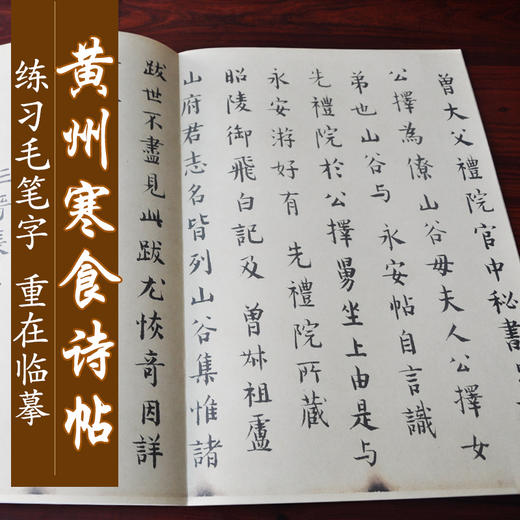 黄州寒食诗帖
练习毛笔字 重在临摹
曾大父禮院官中秘書
公擇為僚山谷母夫人公擇女
弟也山谷与 永安帖自言識
先禮院於公擇舅坐上由是与
永安游好有 先禮院所藏
昭陵御飛白記及 曾叔祖盧
山府君志名皆列山谷集惟諸
跋世不盡見此跋尤恢奇因詳